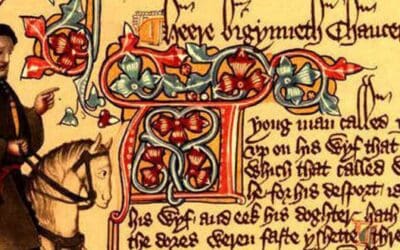 heere bigynneth Chaucer
A yong man called
vp on his wyf that
Which that called
he for his desport is
his wyf and eek his doghter hath
the dores weren faste yshette